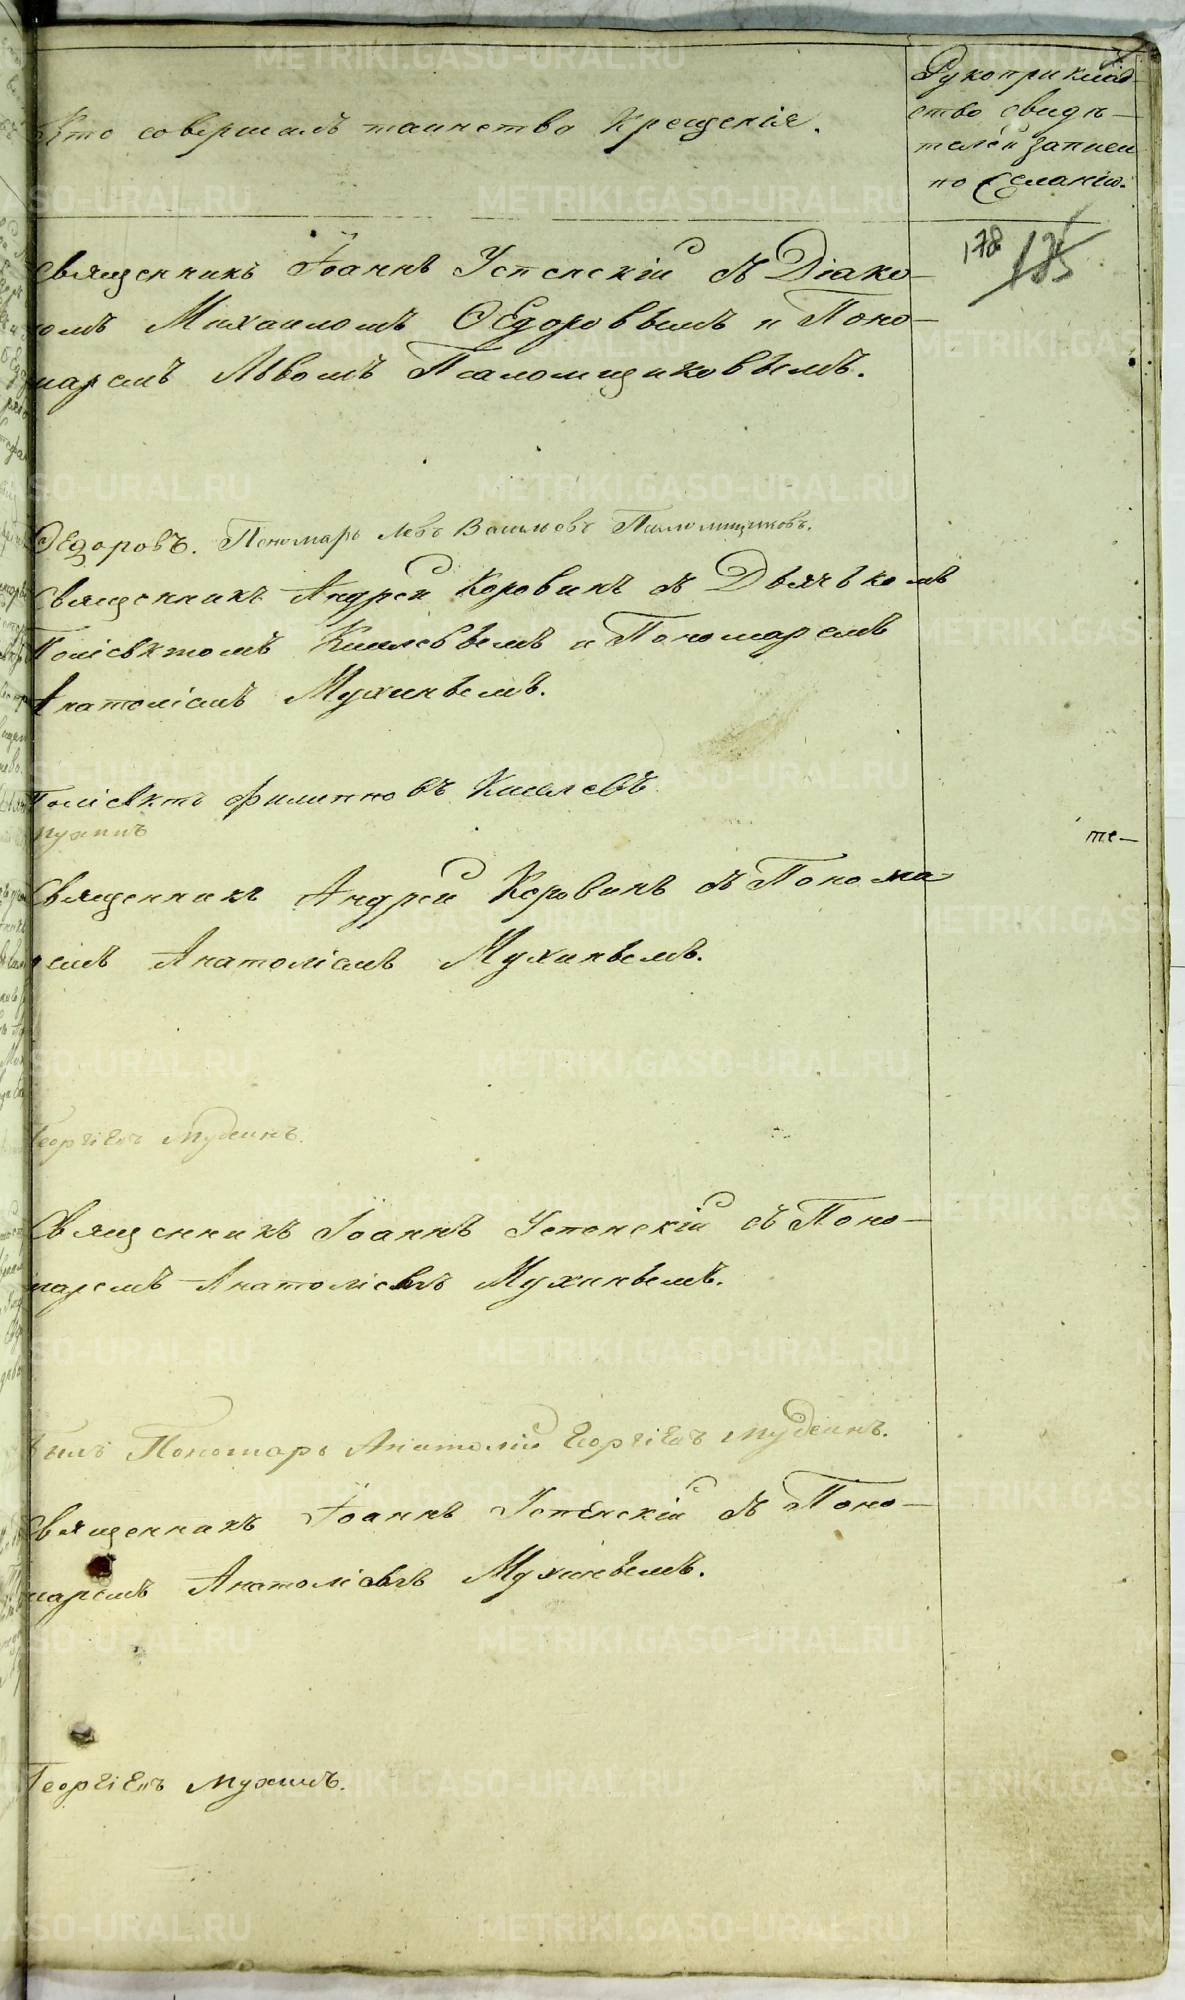 Кто совершалъ таинство Крещенія.
Рукоприклад-
ство свидѣ-
телей записи
по желанію.
178 185
Священникъ Іоаннъ Успенскій съ Діако-
номъ Михаиломъ Ѳедоровымъ и Поно-
маремъ Львомъ Псаломщиковымъ.
Ѳедоровъ. Пономарь Левъ Васильевъ Псаломщиковъ.
Священникъ Андрей Коровинъ съ Дьячькомъ
Поліевктомъ Киселевымъ и Пономаремъ
Анатоліемъ Мухинымъ.
Поліевктъ Филипповъ Киселевъ
Мухинъ
те-
Священникъ Андрей Коровинъ съ Понома
ремъ Анатоліемъ Мухинымъ.
Георгіевъ Мухинъ.
Священникъ Іоаннъ Успенскій съ Поно-
маремъ Анатоліемъ Мухинымъ.
Пономарь Анатолій Георгіевъ Мухинъ.
Священникъ Іоаннъ Успенскій съ Поно-
маремъ Анатоліемъ Мухинымъ.
Георгіевъ Мухинъ.
METRIKI.GASO-URAL.RU